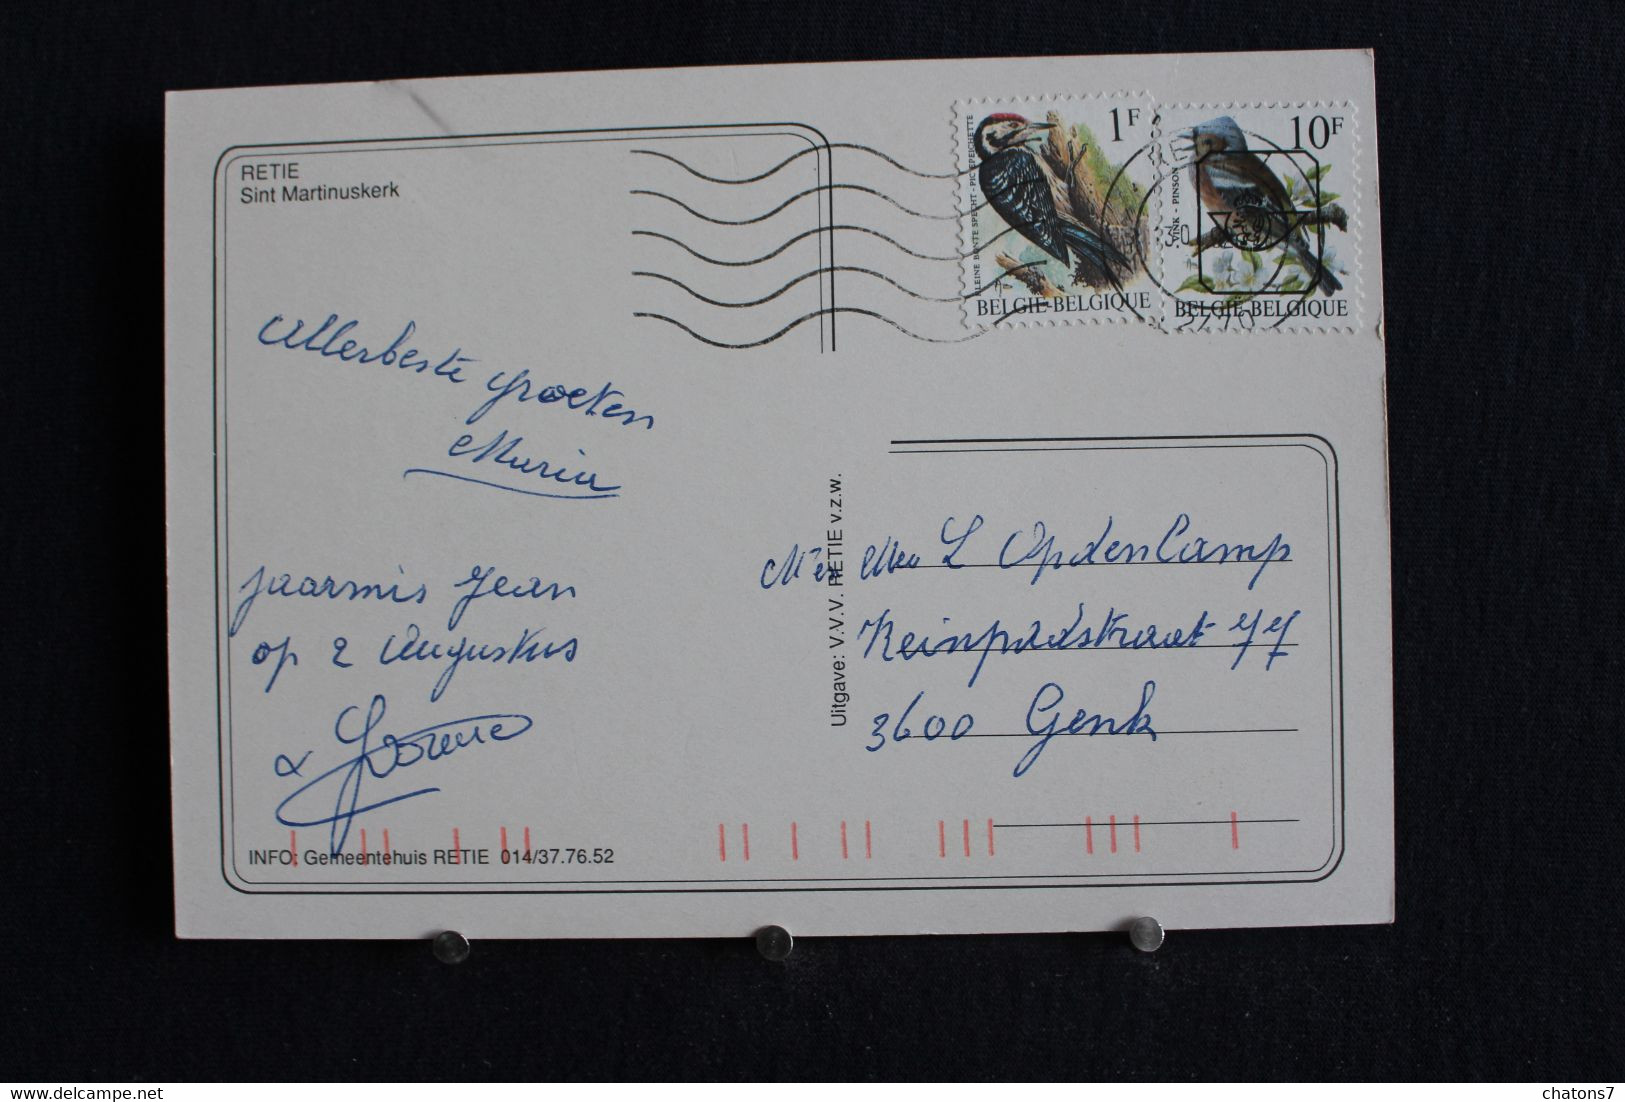 RETIE
Sint Martinuskerk
KLEINE BONTE SPECHT - PIC EPEICHETTE
1F
BELGIË-BELGIQUE
VINK - PINSON
10F
BELGIË-BELGIQUE
30
2470
Allerbeste groeten
Maria
jaarmis Jean
op 2 Augustus
INFO: Gemeentehuis RETIE 014/37.76.52
Uitgave: V.V.V. RETIE v.z.w.
Mr en Mev L Opdencamp
Reinpadstraat 77
3600 Genk
delcampe.net
chatons7